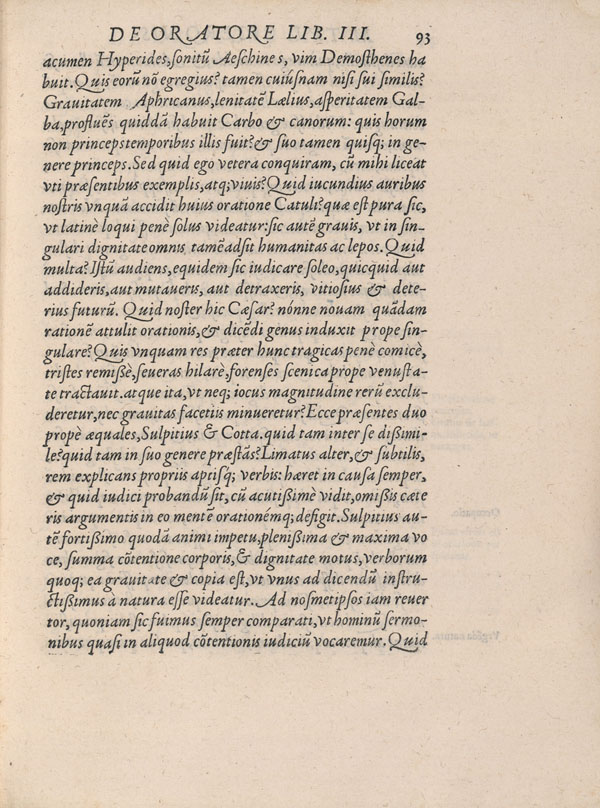 DE ORATORE LIB. III. 93
acumen Hyperides, sonitũ Aeschines, vim Demosthenes ha
buit. Quis eorũ nõ egregius? tamen cuiúsnam nisi sui similis?
Grauitatem Aphricanus, lenitatẽ Lælius, asperitatem Gal-
ba, profluẽs quiddã habuit Carbo & canorum: quis horum
non princeps temporibus illis fuit? & suo tamen quisq; in ge-
nere princeps. Sed quid ego vetera conquiram, cũ mihi liceat
vti præsentibus exemplis, atq; viuis? Quid iucundius auribus
nostris vnquã accidit huius oratione Catuli? quæ est pura sic,
vt latinè loqui penè solus videatur: sic autẽ grauis, vt in sin-
gulari dignitate omnis tamẽ adsit humanitas ac lepos. Quid
multa? Istũ audiens, equidem sic iudicare soleo, quicquid aut
addideris, aut mutaueris, aut detraxeris, vitiosius & dete-
rius futurũ. Quid noster hic Cæsar? nónne nouam quãdam
rationẽ attulit orationis, & dicẽdi genus induxit prope sin-
gulare? Quis vnquam res præter hunc tragicas penè comicè,
tristes remissè, seueras hilarè, forenses scenica prope venusta-
te tractauit. atque ita, vt neq; iocus magnitudine rerũ exclu-
deretur, nec grauitas facetiis minueretur? Ecce præsentes duo
propè æquales, Sulpitius & Cotta. quid tam inter se dißimi-
le? quid tam in suo genere præstãs? Limatus alter, & subtilis,
rem explicans propriis aptisq; verbis: hæret in causa semper,
& quid iudici probandũ sit, cũ acutißimè vidit, omißis cæte
ris argumentis in eo mentẽ orationémq; defigit. Sulpitius au-
tẽ fortißimo quodã animi impetu, plenißima & maxima vo
ce, summa cõtentione corporis, & dignitate motus, verborum
quoq; ea grauitate & copia est, vt vnus ad dicendũ instru-
ctißimus à natura esse videatur. Ad nosmetipsos iam reuer
tor, quoniam sic fuimus semper comparati, vt hominũ sermo-
nibus quasi in aliquod cõtentionis iudiciũ vocaremur. Quid